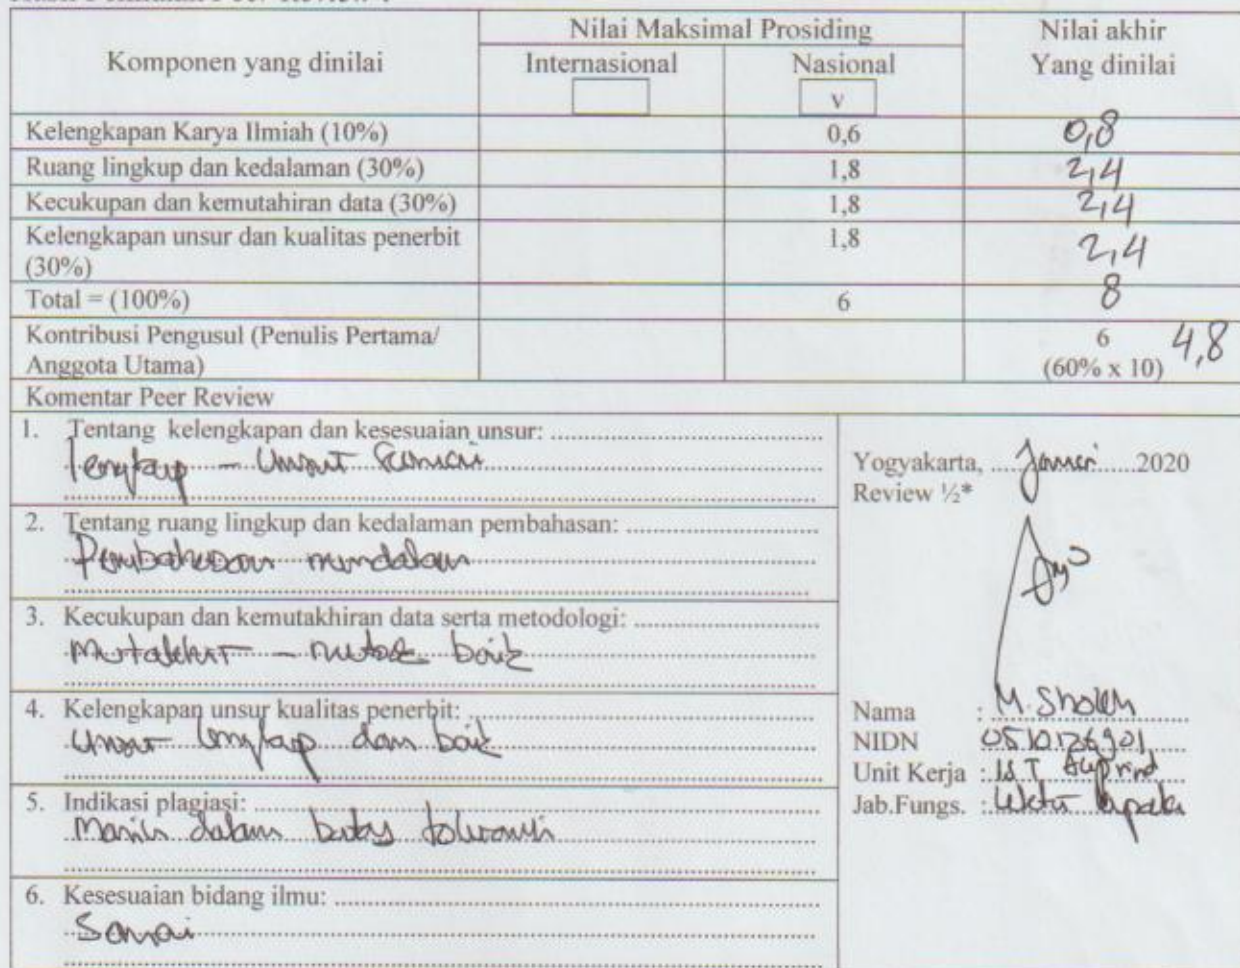 Komponen yang dinilai
Nilai Maksimal Prosiding
Nilai akhir
Yang dinilai
Internasional
Nasional
v
Kelengkapan Karya Ilmiah (10%) 0,6 0,8
Ruang lingkup dan kedalaman (30%) 1,8 2,4
Kecukupan dan kemutahiran data (30%) 1,8 2,4
Kelengkapan unsur dan kualitas penerbit 1,8 2,4
(30%)
Total = (100%) 6 8
Kontribusi Pengusul (Penulis Pertama/ 6 4,8
Anggota Utama) (60% x 10)
Komentar Peer Review
1. Tentang kelengkapan dan kesesuaian unsur:
lengkap - unsur sesuai
2. Tentang ruang lingkup dan kedalaman pembahasan:
Pembahasan mendalam
3. Kecukupan dan kemutakhiran data serta metodologi:
mutakhir - baik
4. Kelengkapan unsur kualitas penerbit:
unsur lengkap dan baik
5. Indikasi plagiasi:
Masih dalam batas toleransi
6. Kesesuaian bidang ilmu:
Sesuai
Yogyakarta, Januari 2020
Review ½*
Nama : M. Sholeh
NIDN 0510126901
Unit Kerja : IST Akprind
Jab.Fungs. : Lektor Kepala